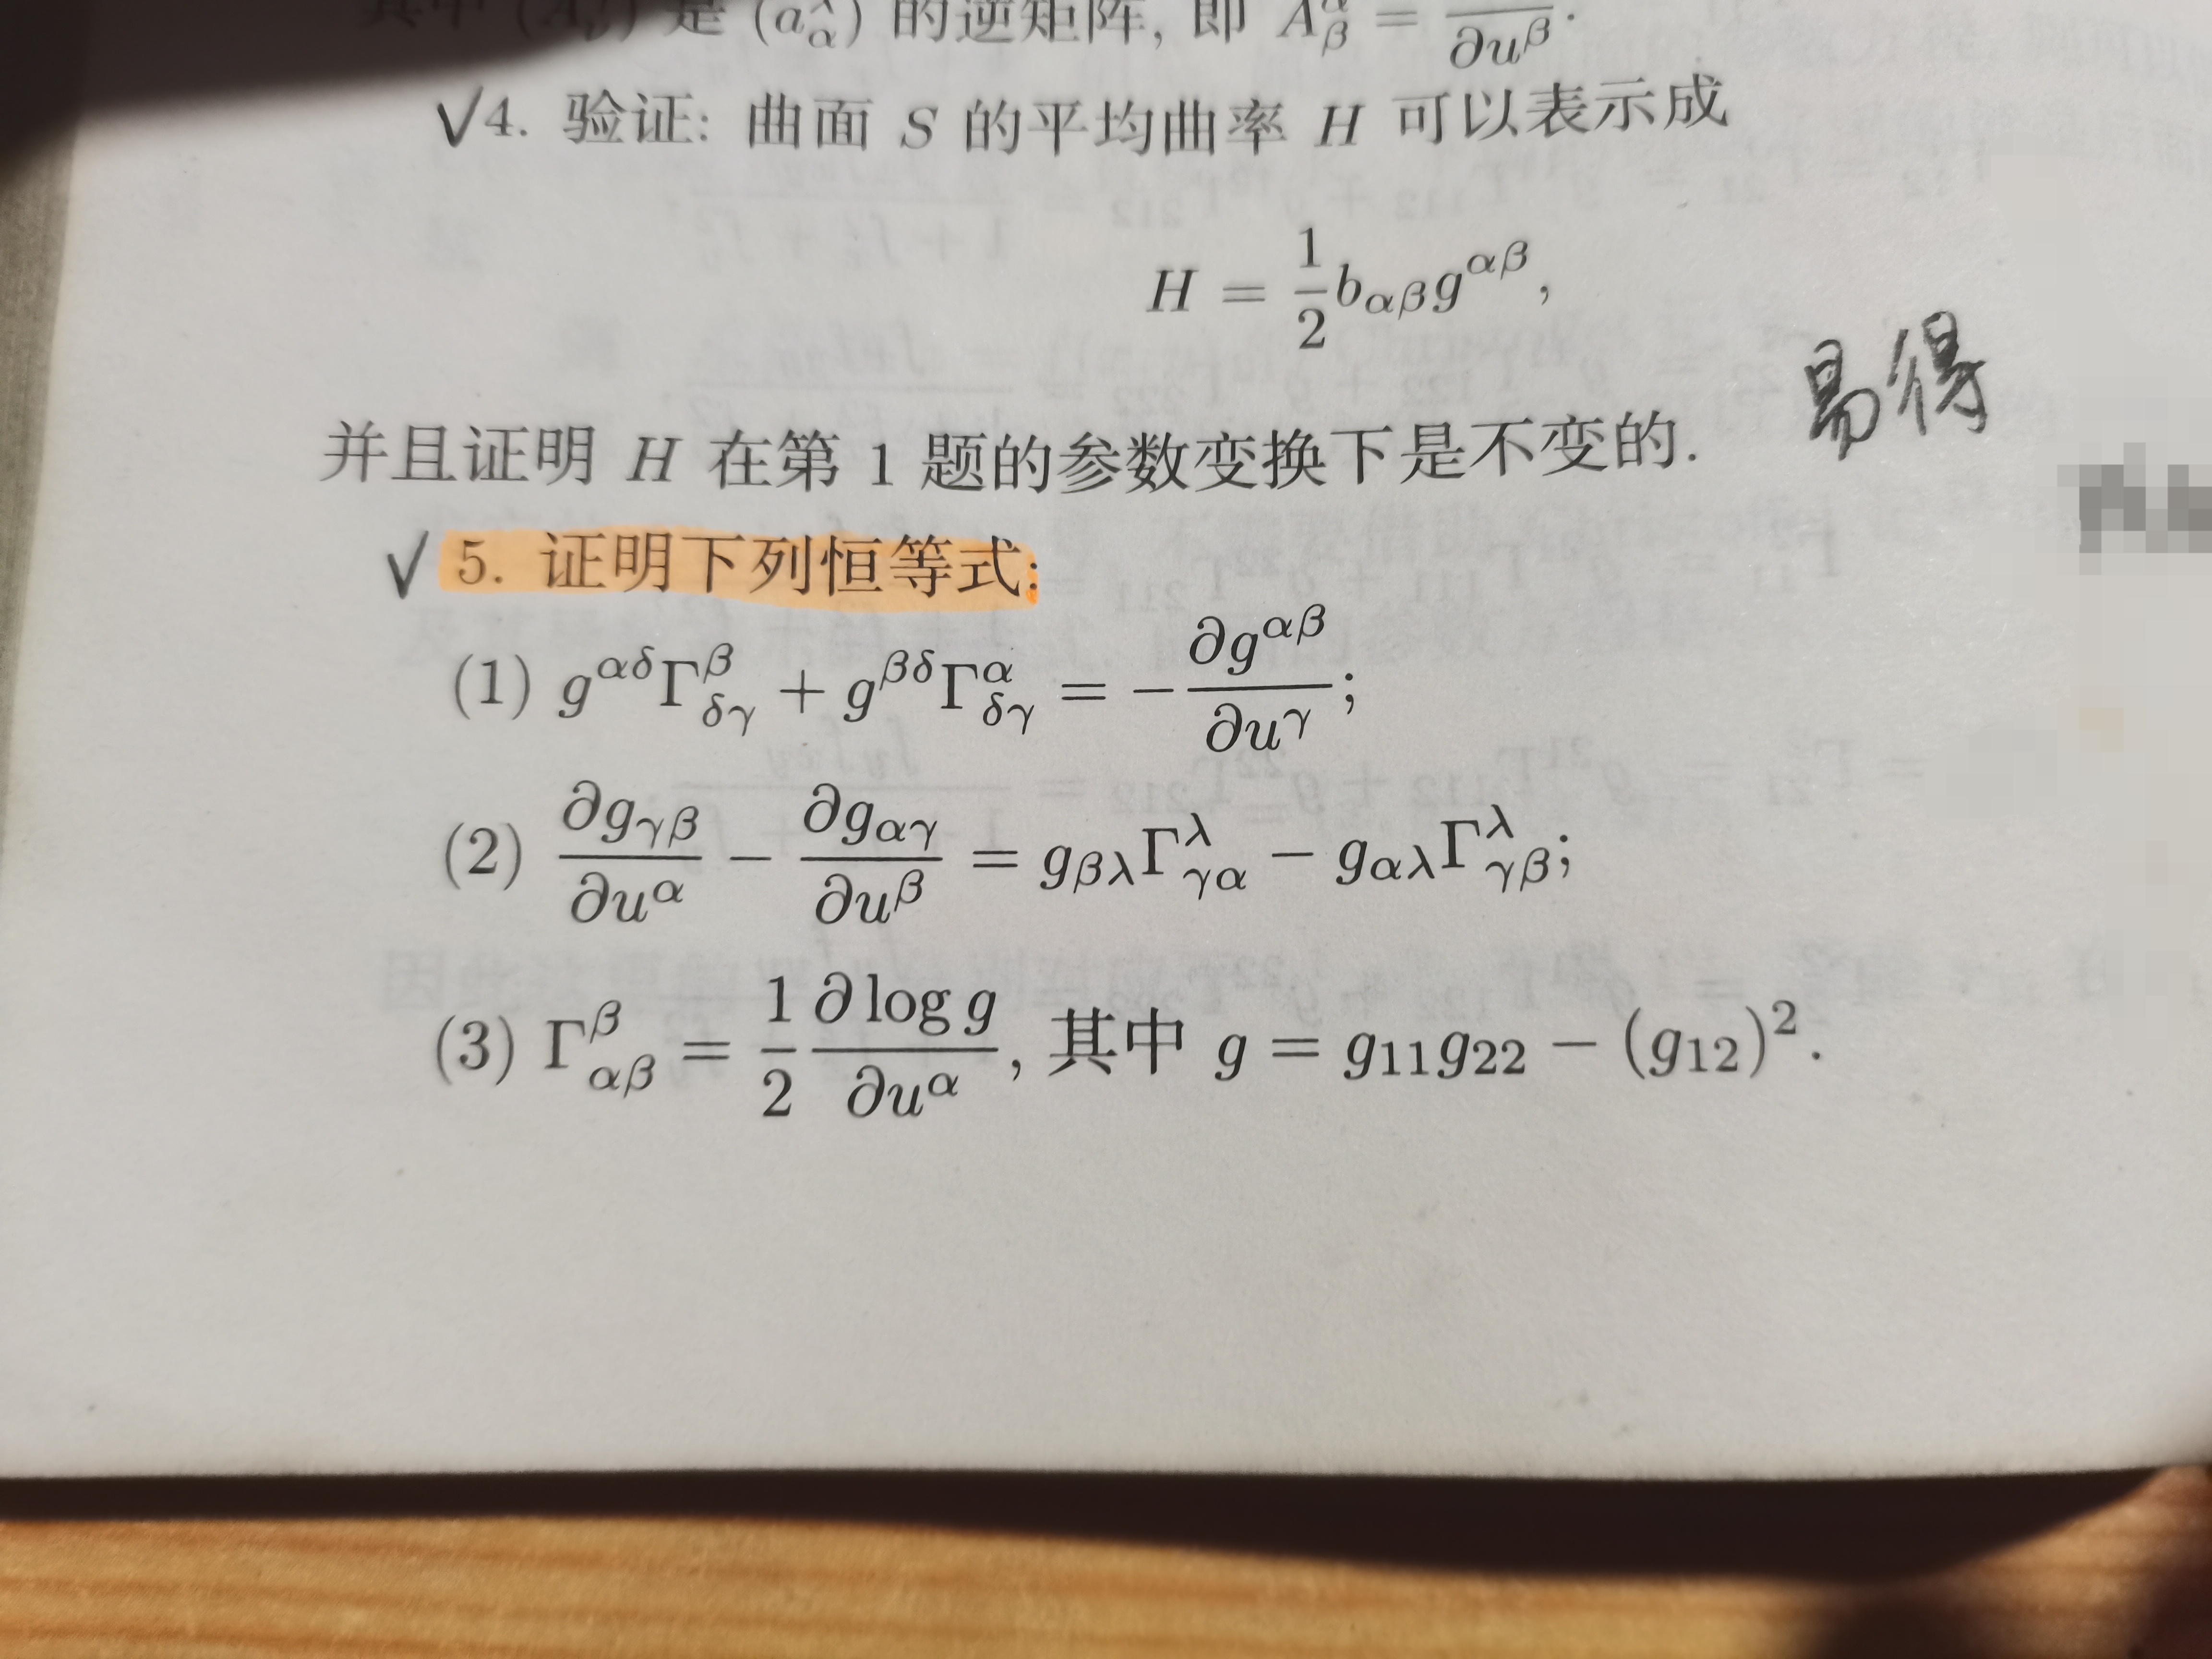 是 (a^λ_α) 的逆矩阵, 即 A^α_β = /∂u^β.
√4. 验证: 曲面 S 的平均曲率 H 可以表示成
H = 1/2 b_{αβ}g^{αβ},
易得
并且证明 H 在第 1 题的参数变换下是不变的.
√ 5. 证明下列恒等式:
(1) g^{αδ}Γ^β_{δγ} + g^{βδ}Γ^α_{δγ} = −∂g^{αβ}/∂u^γ;
(2) ∂g_{γβ}/∂u^α − ∂g_{αγ}/∂u^β = g_{βλ}Γ^λ_{γα} − g_{αλ}Γ^λ_{γβ};
(3) Γ^β_{αβ} = 1/2 ∂ log g/∂u^α, 其中 g = g_{11}g_{22} − (g_{12})^2.